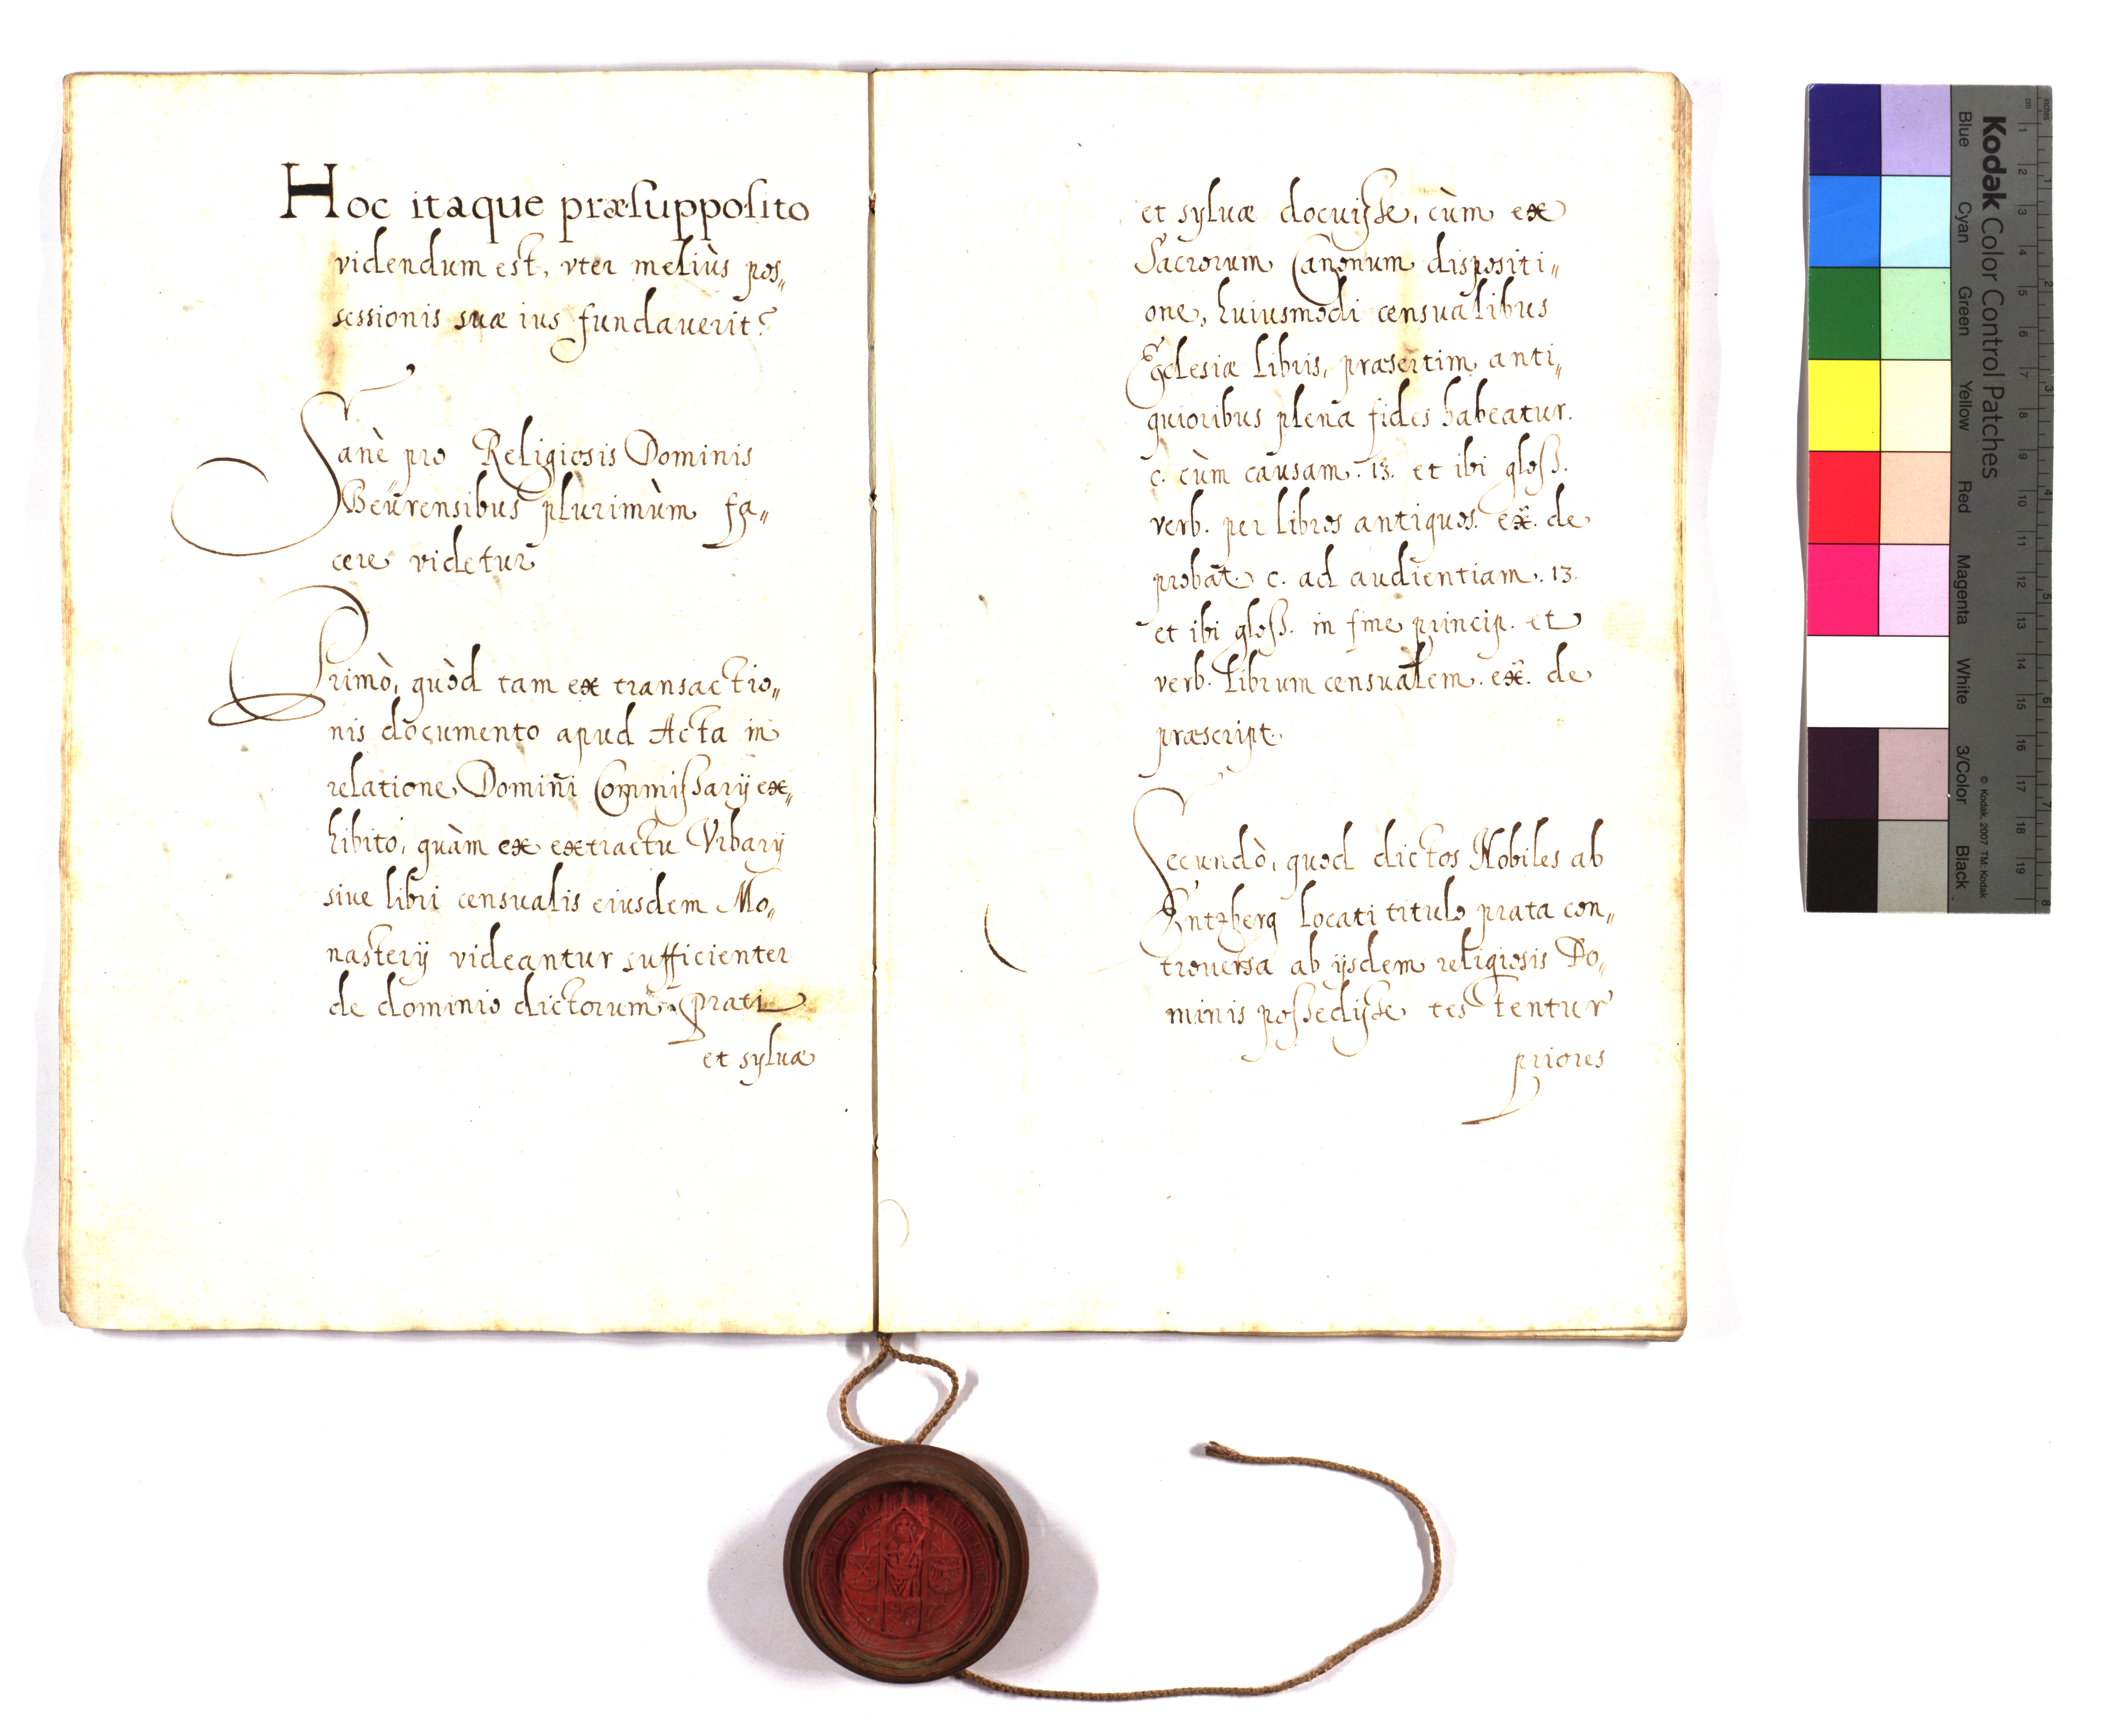 Hoc itaque præsupposito
videndum est, vter meliùs pos„
sessionis suæ ius fundauerit?
Sanè pro Religiosis Dominis
Beürensibus plurimùm fa„
cere videtur
Primò, quòd tam ex transactio„
nis documento apud Acta in
relatione Domini Commissarij ex„
hibito, quàm ex extractu Vrbarij
siue libri censualis eiusdem Mo„
nasterij videantur sufficienter
de dominio dictorum Prati
et syluæ
et syluæ docuisse, cùm ex
Sacrorum Canonum dispositi„
one, huiusmodi censualibus
Ecclesiæ libris, præsertim anti„
quioribus plena fides habeatur.
c. cùm causam. 13. et ibi gloss.
verb. per libros antiquos. ex. de
probat. c. ad audientiam. 13.
et ibi gloss. in fine princip. et
verb. Librum censualem. ex. de
præscript.
Secundò, quod dictos Nobiles ab
Entzberg locati titulo prata con„
trouersa ab ijsdem religiosis Do„
minis possedisse testentur
priores
Kodak Color Control Patches
Blue Cyan Green Yellow Red Magenta White 3/Color Black
© Kodak, 2007 TM: Kodak
cm 1 2 3 4 5 6 7 8 9 10 11 12 13 14 15 16 17 18 19
inches 1 2 3 4 5 6 7 8